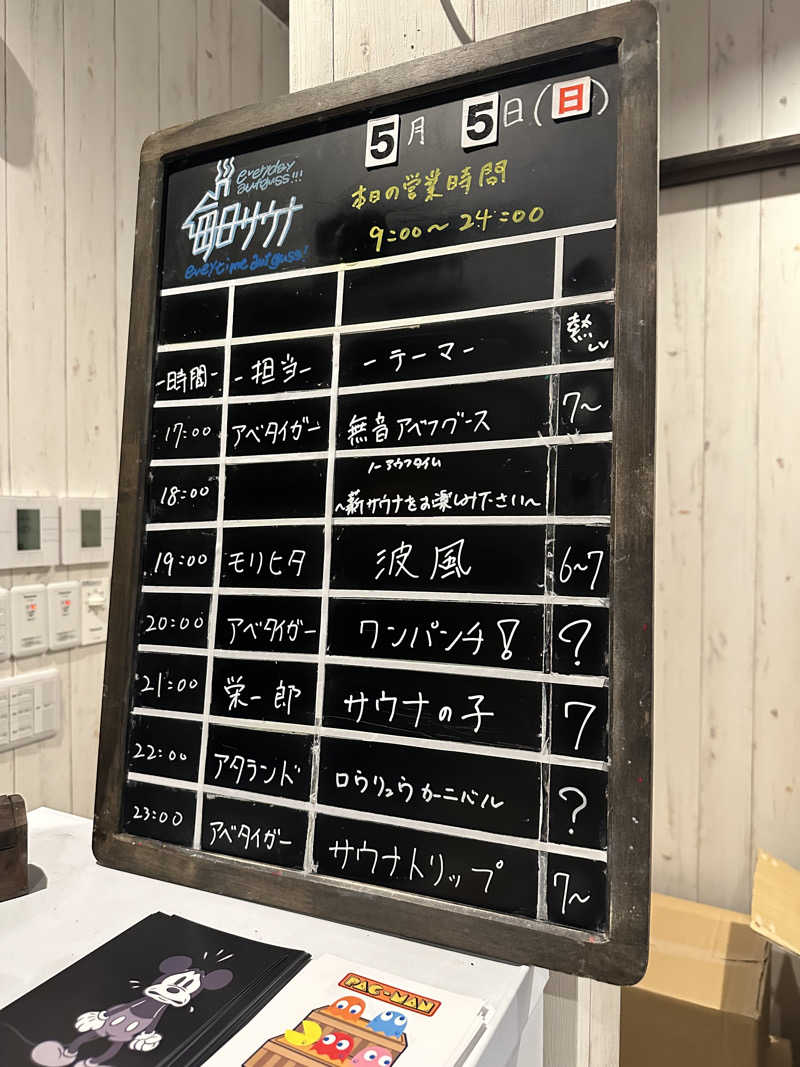 5月 5日(日)
everyday
aufguss!!!
毎日サウナ
everytime aufguss!
本日の営業時間
9:00〜24:00
-時間- -担当- -テーマ- 熱LV
17:00 アベタイガー 無音アベフグース 7〜
18:00 ノーアウフタイム
〜薪サウナをお楽しみ下さい〜
19:00 モリヒタ 波風 6〜7
20:00 アベタイガー ワンパンチ! ?
21:00 栄一郎 サウナの子 7
22:00 アタランド ロウリュウカーニバル ?
23:00 アベタイガー サウナトリップ 7〜
PAC-MAN